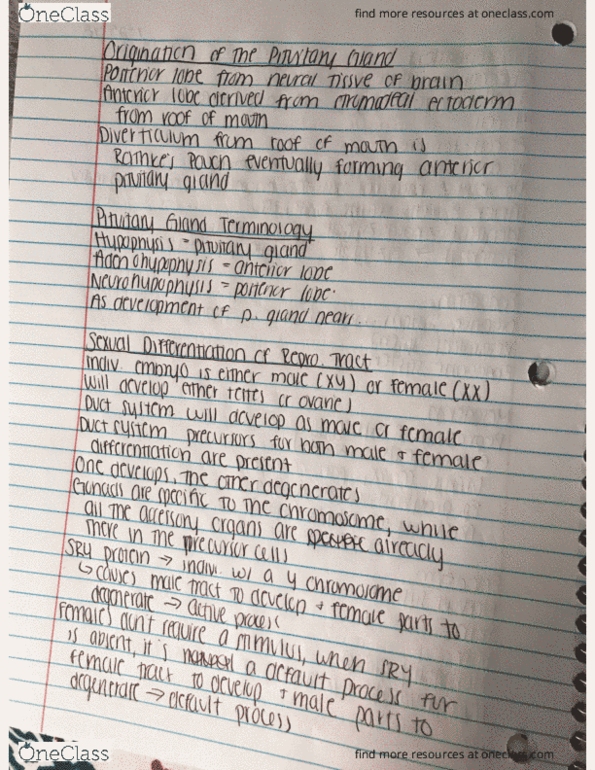 OneClass
find more resources at oneclass.com
Origination of the Pituitary Gland
Posterior lobe from neural tissue of brain
Anterior lobe derived from stomadeal ectoderm
from roof of mouth
Diverticulum from roof of mouth is
Rathke's Pouch eventually forming anterior
pituitary gland
Pituitary Gland Terminology
Hypophysis = pituitary gland
Adenohypophysis = anterior lobe
Neurohypophysis = posterior lobe
As development of p. gland nears...
Sexual Differentiation of Repro. Tract
Indiv. embryo is either male (XY) or female (XX)
Will develop either testes or ovaries
Duct system will develop as male or female
Duct system precursors for both male & female
differentiation are present
One develops, the other degenerates
Gonads are specific to the chromosome, while
all the accessory organs are already
there in the precursor cells
SRY protein → indiv. w/ a y chromosome
↳ causes male tract to develop & female parts to
degenerate → active process
Females don't require a stimulus, when SRY
is absent, it's a default process for
female tract to develop & male parts to
degenerate → default process
OneClass
find more resources at oneclass.com